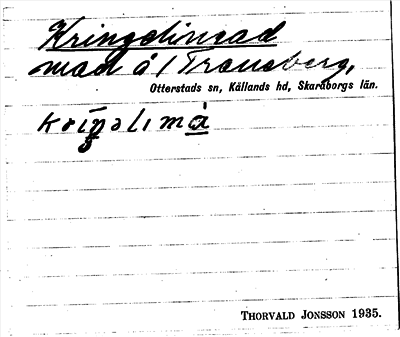 Kringelimad
mad å/Traneberg,
Otterstads sn, Kållands hd, Skaraborgs län.
THORVALD JONSSON 1935.